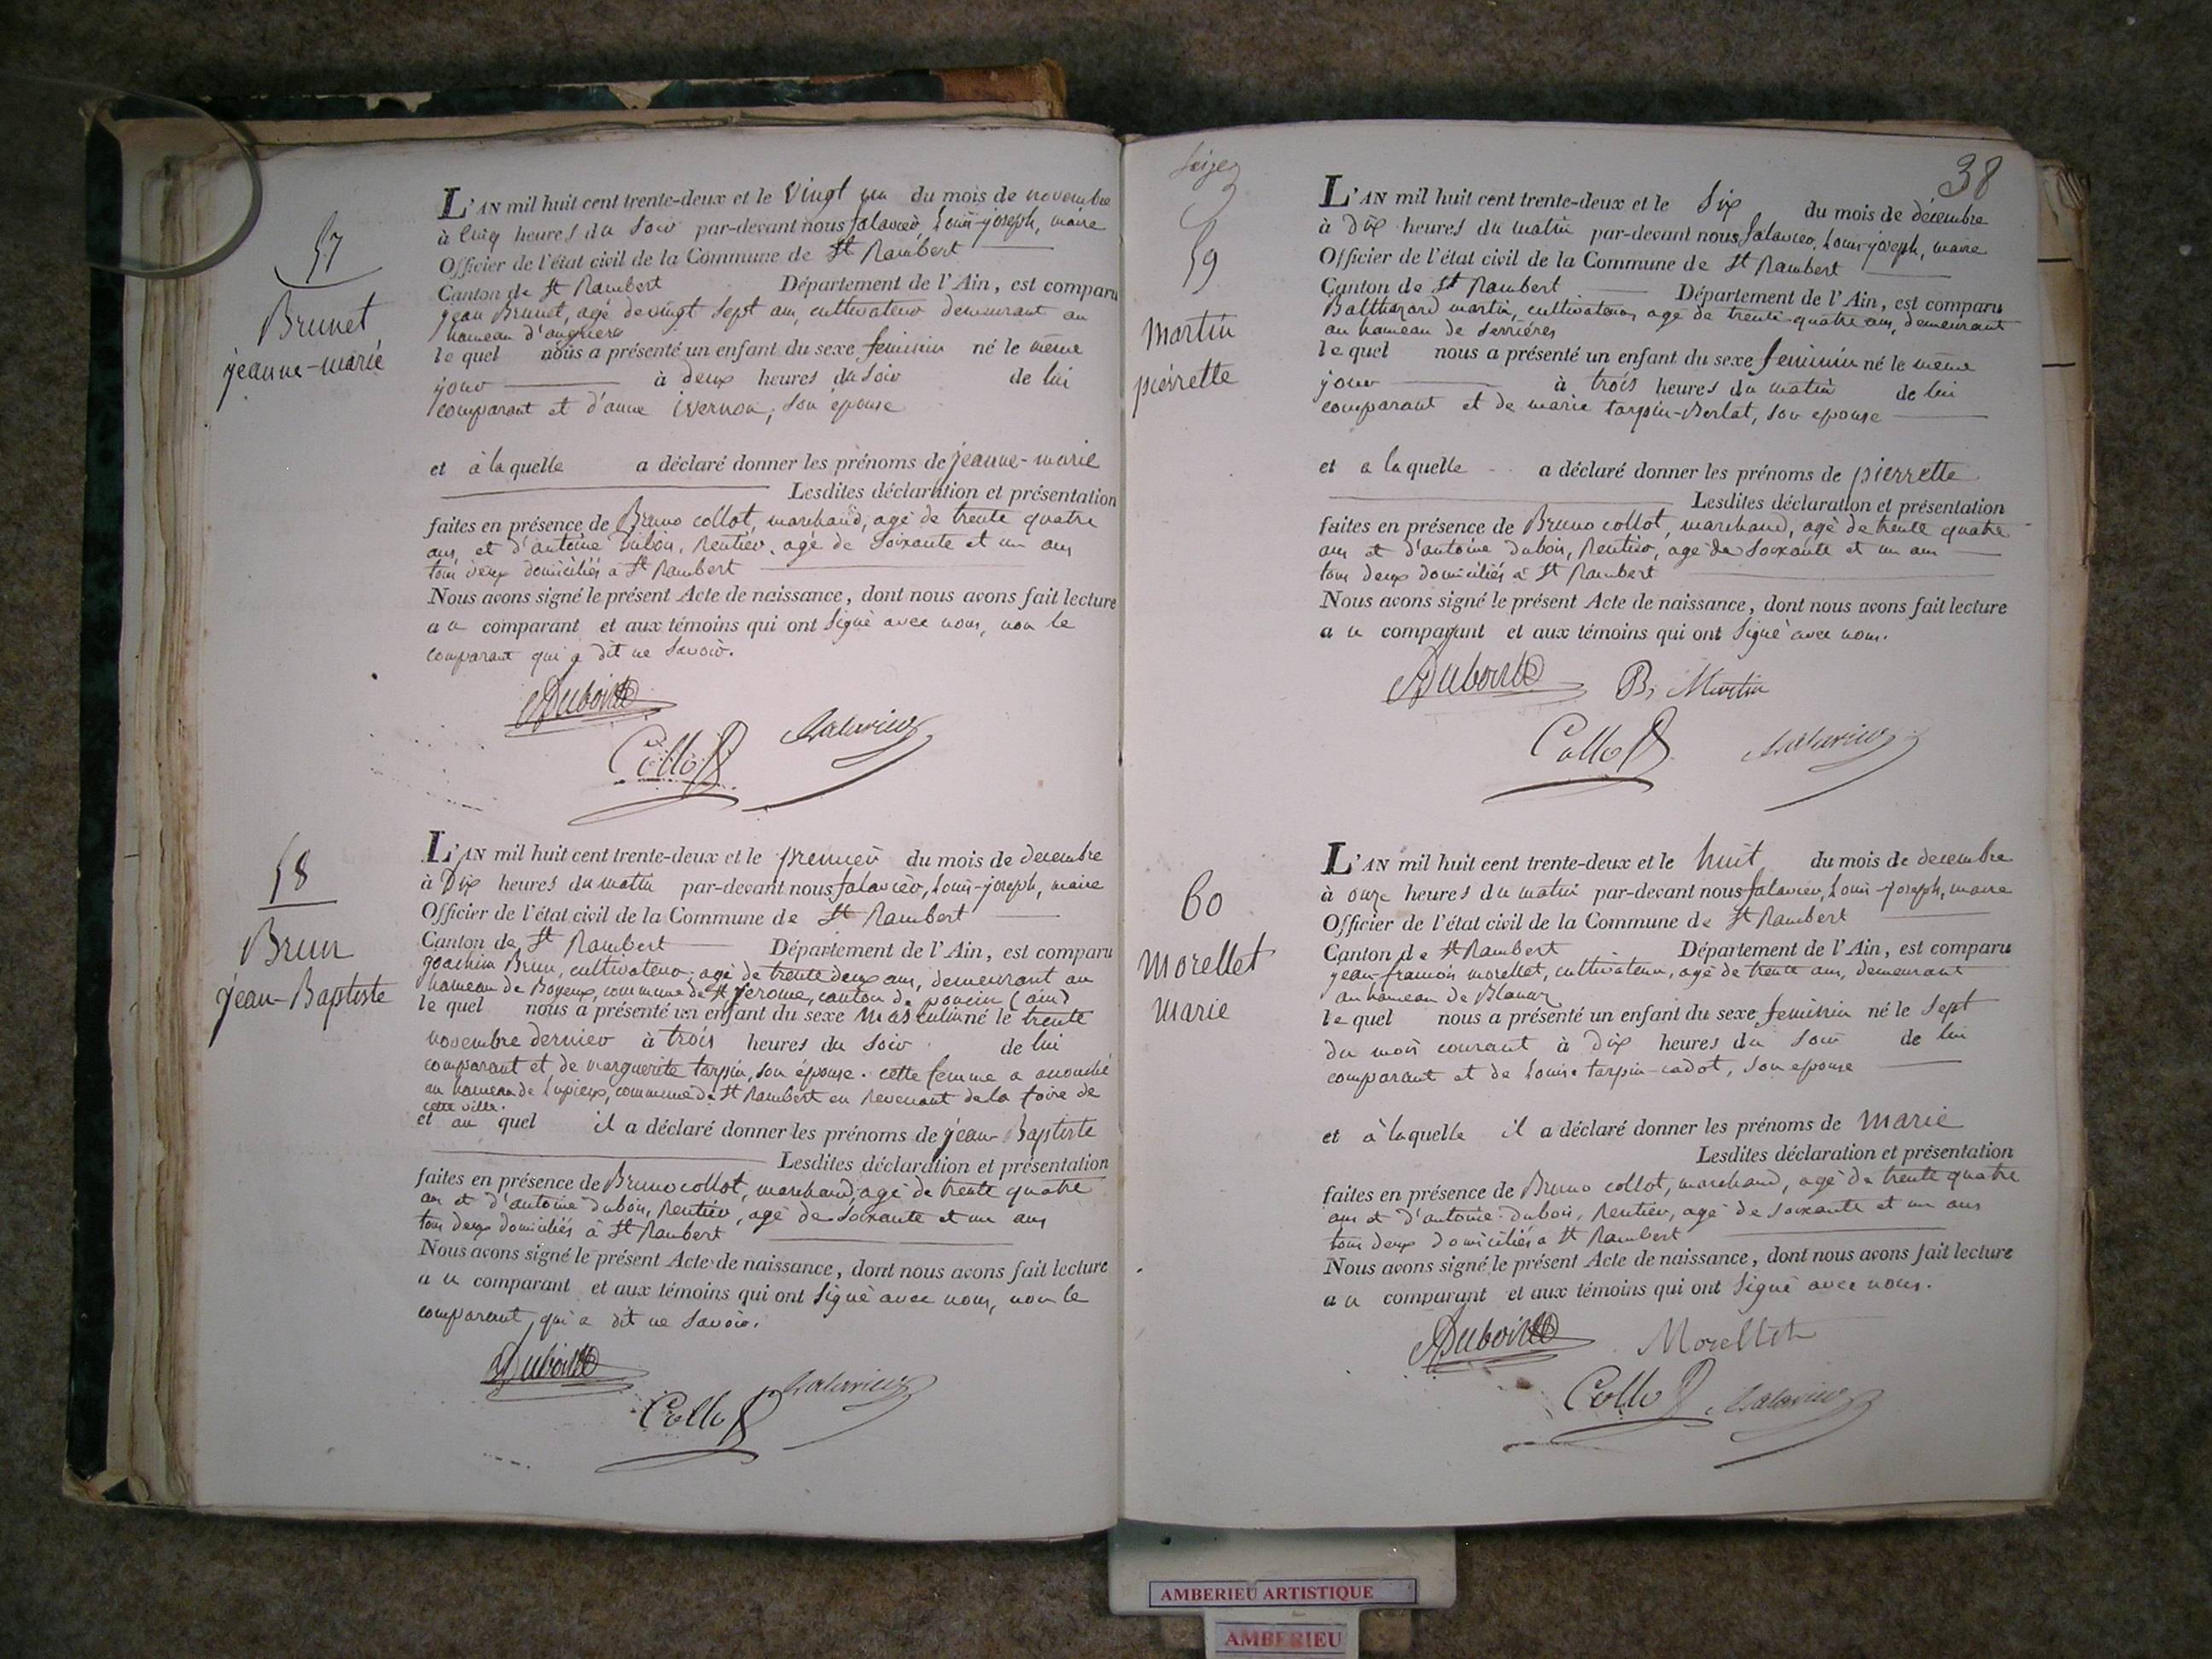 57
Brunet
jeanne-marie
L'AN mil huit cent trente-deux et le vingt un du mois de novembre
à cinq heures du soir par-devant nous falavier, Louis-joseph, maire
Officier de l'état civil de la Commune de St Rambert
Canton de St Rambert Département de l'Ain, est comparu
jean Brunet, agé de vingt sept ans, cultivateur demeurant au
hameau d'angrieres
le quel nous a présenté un enfant du sexe feminin né le même
jour à deux heures du soir de lui
comparant et d'anne ivernon, son épouse
et à laquelle a déclaré donner les prénoms de jeanne-marie
Lesdites déclaration et présentation
faites en présence de Bruno collot, marchand, agé de trente quatre
ans, et d'antoine Dubois, Rentier, agé de soixante et un ans
tous deux domiciliés à St Rambert
Nous avons signé le présent Acte de naissance, dont nous avons fait lecture
au comparant et aux témoins qui ont signé avec nous, non le
comparant qui a dit ne savoir.
Dubois
Collot
falavier
58
Brun
jean-Baptiste
L'AN mil huit cent trente-deux et le premier du mois de decembre
à Dix heures du matin par-devant nous falavier, Louis-joseph, maire
Officier de l'état civil de la Commune de St Rambert
Canton de St Rambert Département de l'Ain, est comparu
joachim Brun, cultivateur, agé de trente deux ans, demeurant au
hameau de Boyeux, commune de St jerome, canton de poncin (ain)
le quel nous a présenté un enfant du sexe masculin né le trente
novembre dernier à trois heures du soir de lui
comparant et de marguerite tarpin, son épouse. cette femme a accouché
au hameau de Lupieux, commune de St Rambert en revenant de la foire de
cette ville.
et au quel il a déclaré donner les prénoms de jean-Baptiste
Lesdites déclaration et présentation
faites en présence de Bruno collot, marchand, agé de trente quatre
ans et d'antoine Dubois, Rentier, agé de soixante et un ans
tous deux domiciliés à St Rambert
Nous avons signé le présent Acte de naissance, dont nous avons fait lecture
au comparant et aux témoins qui ont signé avec nous, non le
comparant, qui a dit ne savoir.
Dubois
Collot
falavier
38
Seize
59
Martin
pierrette
L'AN mil huit cent trente-deux et le Six du mois de décembre
à Dix heures du matin par-devant nous falavier, Louis-joseph, maire
Officier de l'état civil de la Commune de St Rambert
Canton de St Rambert Département de l'Ain, est comparu
Balthazard martin, cultivateur, agé de trente-quatre ans, demeurant
au hameau de serrières
le quel nous a présenté un enfant du sexe feminin né le même
jour à trois heures du matin de lui
comparant et de marie tarpin-Berlat, son epouse
et a laquelle a déclaré donner les prénoms de pierrette
Lesdites déclaration et présentation
faites en présence de Bruno collot, marchand, agé de trente quatre
ans et d'antoine Dubois, Rentier, agé de soixante et un ans
tous deux domiciliés à St Rambert
Nous avons signé le présent Acte de naissance, dont nous avons fait lecture
au comparant et aux témoins qui ont signé avec nous.
Dubois B, Martin
Collot falavier
60
Morellet
Marie
L'AN mil huit cent trente-deux et le huit du mois de decembre
à onze heures du matin par-devant nous falavier, Louis-joseph, maire
Officier de l'état civil de la Commune de St Rambert
Canton de St Rambert Département de l'Ain, est comparu
jean-francois morellet, cultivateur, agé de trente ans, demeurant
au hameau de Blanaz
le quel nous a présenté un enfant du sexe feminin né le sept
du mois courant à Dix heures du soir de lui
comparant et de Louise tarpin-cadot, son epouse
et à laquelle il a déclaré donner les prénoms de marie
Lesdites déclaration et présentation
faites en présence de Bruno collot, marchand, agé de trente quatre
ans et d'antoine Dubois, Rentier, agé de soixante et un ans
tous deux domiciliés à St Rambert
Nous avons signé le présent Acte de naissance, dont nous avons fait lecture
au comparant et aux témoins qui ont signé avec nous.
Dubois Morellet
Collot falavier
AMBERIEU ARTISTIQUE
AMBERIEU